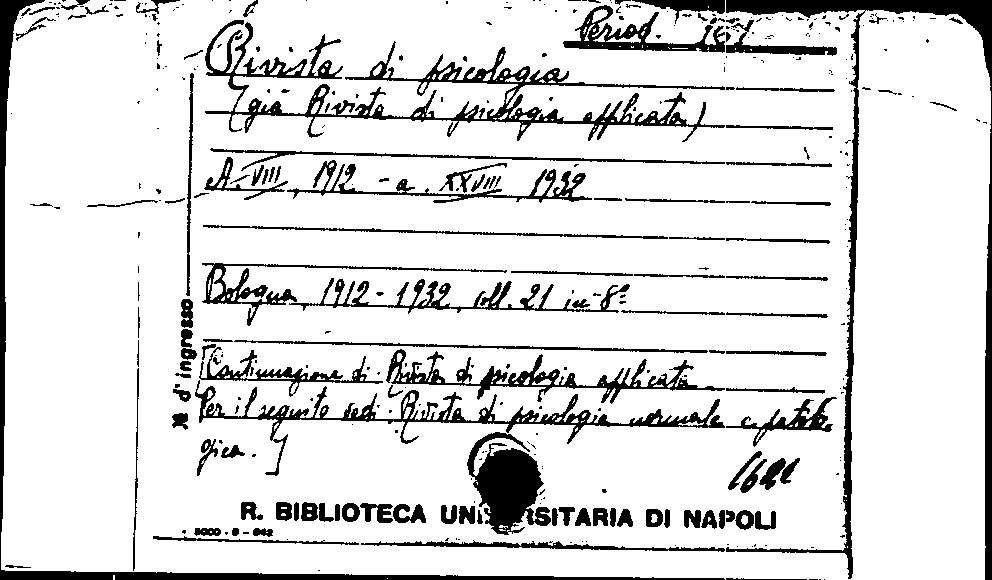 Period. 161
Rivista di psicologia
(già Rivista di psicologia applicata)
A. VIII, 1912 - a. XXVIII, 1932
Bologna, 1912 - 1932, voll. 21 in-8º
[Continuazione di: Rivista di psicologia applicata
Per il seguito vedi: Rivista di psicologia normale e patolo-
gica.]
R. BIBLIOTECA UNIVERSITARIA DI NAPOLI
d'ingresso